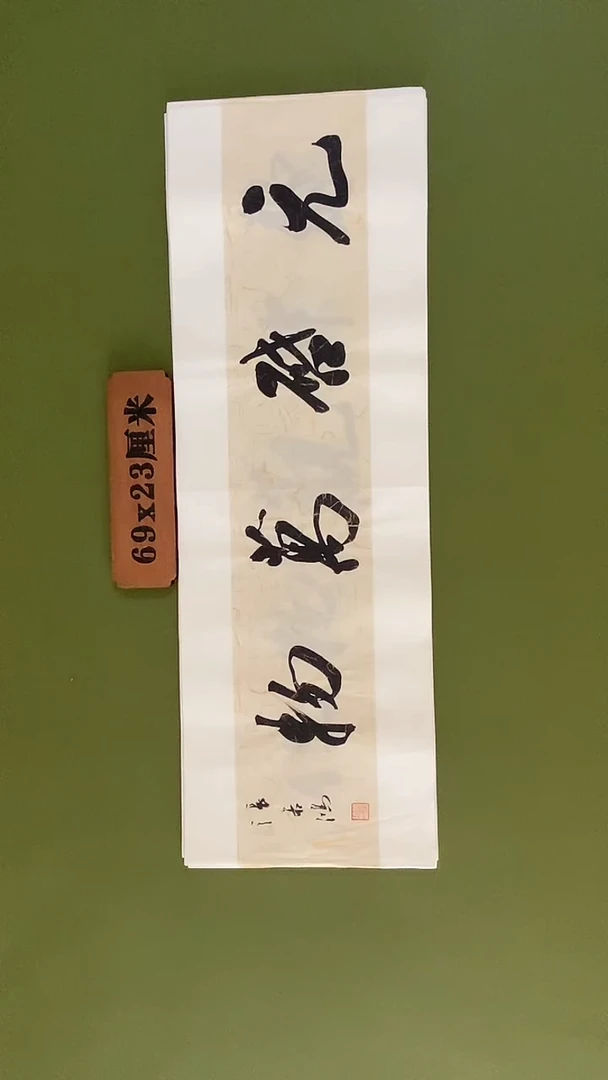 元啓萬物
69x23厘米